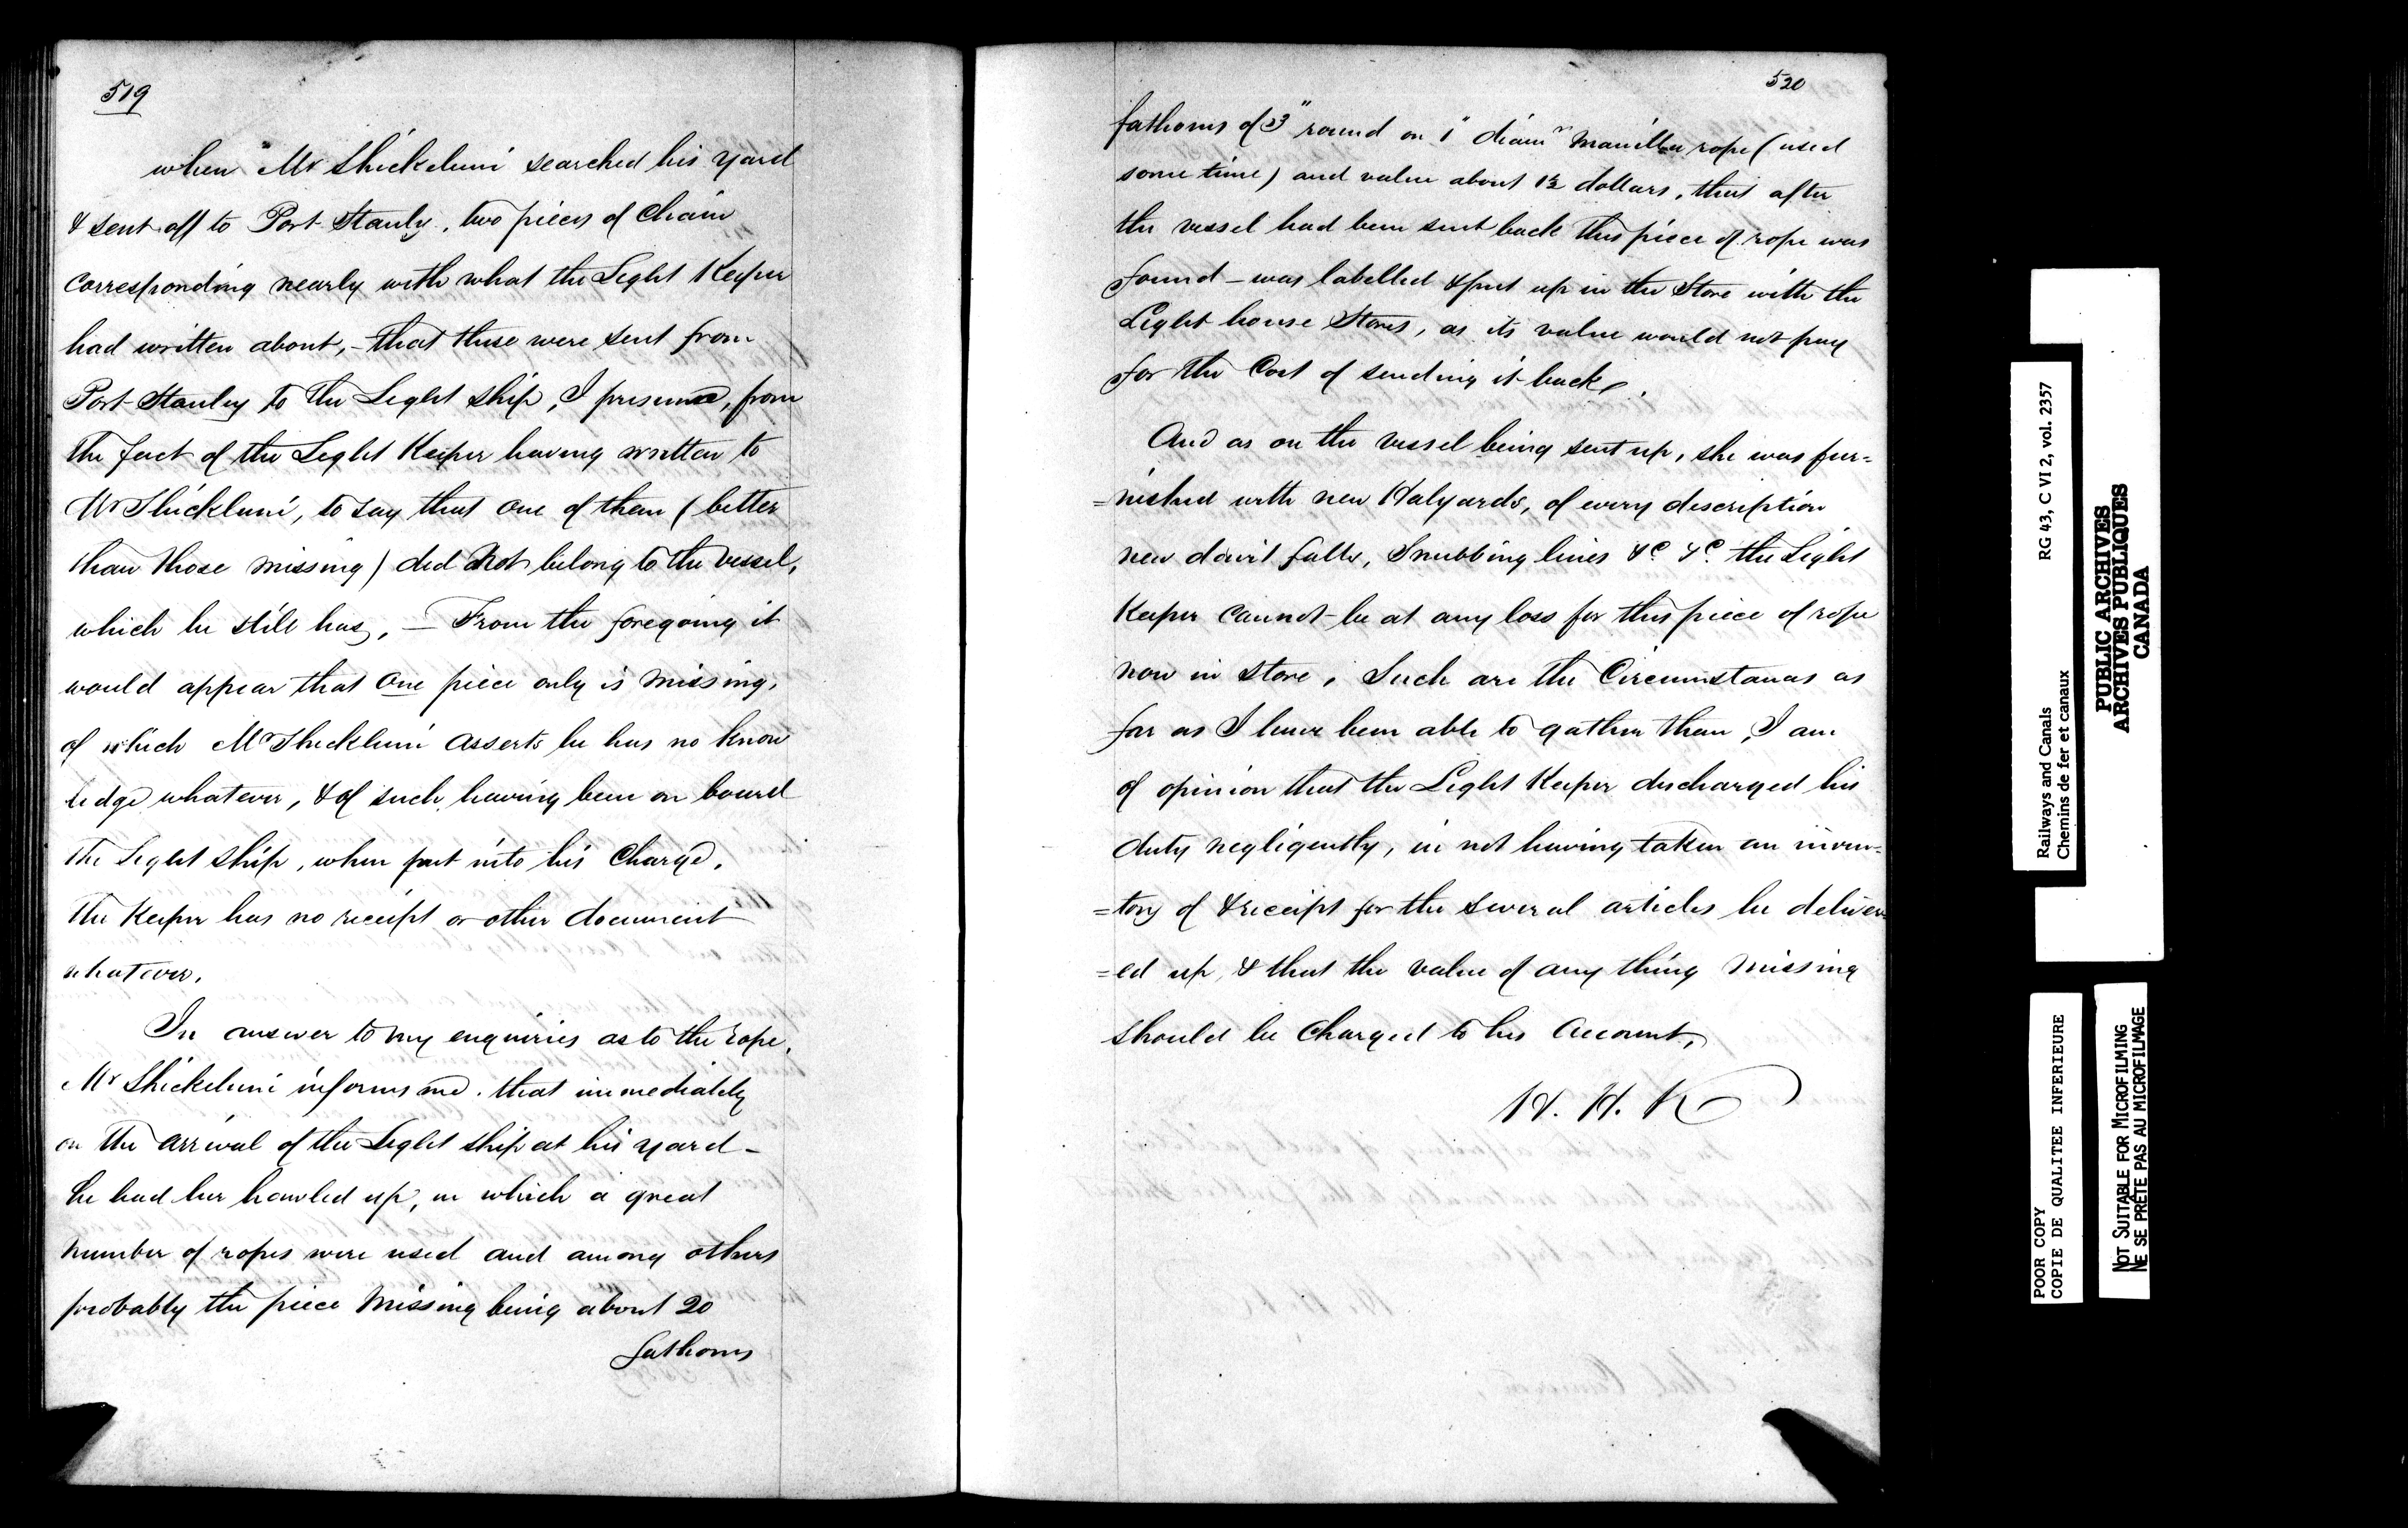 519
when Mr Shickeluni searched his yard
& sent off to Port Stanly, two pieces of Chain
corresponding nearly with what the Light Keeper
had written about, - that these were sent from
Port Stanley to the Light Ship, I presume, from
the fact of the Light Keeper having written to
Mr Shickluni, to say that one of them (better
than those missing) did not belong to the vessel,
which he still has, — From the foregoing it
would appear that one piece only is missing,
of which Mr Shickluni asserts he has no know
ledge whatever, & of such having been on board
the Light Ship, when put into his Charge,
The Keeper has no receipt or other document
whatever.
In answer to my enquiries as to the rope,
Mr Shickeluni informs me. that immediately
on the arrival of the Light Ship at his yard -
he had her hawled up, in which a great
number of ropes were used and among others
probably the piece missing being about 20
fathoms
520
fathoms of 3" round or 1" diamr Manilla rope (used
some time) and value about 1½ dollars, that after
the vessel had been sent back this piece of rope was
found - was labelled & put up in the Store with the
Light house Stores, as its value would not pay
for the Cost of sending it back.
And as on the vessel being sent up, she was fur-
=nished with new Halyards, of every description
new davit falls, Snubbing lines &c &c. the Light
Keeper cannot be at any loss for this piece of rope
now in store, Such are the Circumstances as
far as I have been able to gather them, I am
of opinion that the Light Keeper discharged his
duty negligently, in not having taken an inven-
=tory of & receipt for the several articles he deliver-
=ed up, & that the value of any thing missing
should be Charged to his Account,
H. H. K
Railways and Canals RG 43, C VI 2, vol. 2357
Chemins de fer et canaux
PUBLIC ARCHIVES
ARCHIVES PUBLIQUES
CANADA
POOR COPY
COPIE DE QUALITEE INFERIEURE
NOT SUITABLE FOR MICROFILMING
NE SE PRÊTE PAS AU MICROFILMAGE